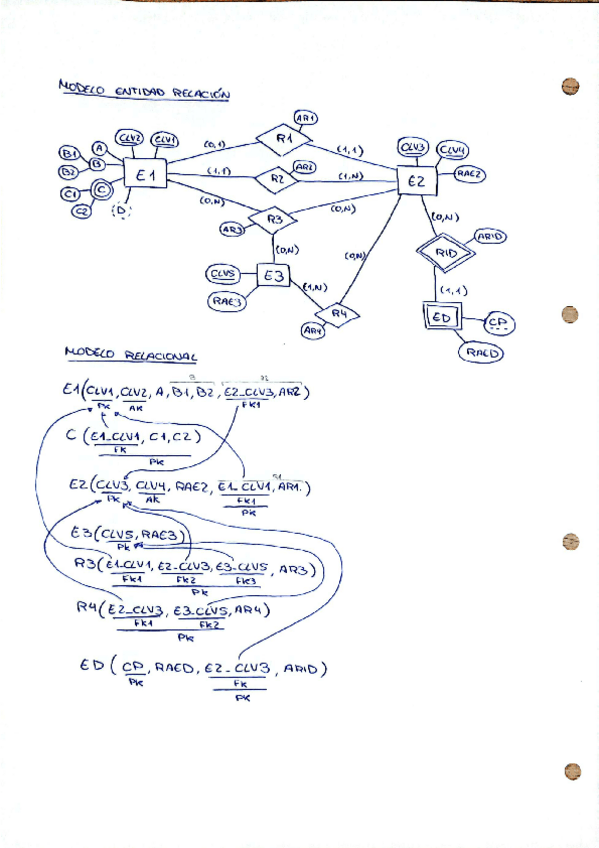 MODELO ENTIDAD RELACIÓN
AR1
R1
(0,1)
(1,1)
B1
A
CLV2
CLV1
B2
B
E1
(1,1)
R2
AR2
(1,N)
CLV3
CLV4
E2
RAE2
C1
C
C2
D
(0,N)
AR3
R3
(0,N)
(0,N)
RID
ARID
(0,N)
(0,N)
CLV5
E3
(1,N)
RAE3
R4
AR4
(1,1)
ED
CP
RAED
MODELO RELACIONAL
B
R2
E1(CLV1, CLV2, A, B1, B2, E2_CLV3, AR2)
PK AK FK1
C (E1_CLV1, C1, C2)
FK
PK
R1
E2(CLV3, CLV4, RAE2, E1_CLV1, AR1)
PK AK FK1
PK
E3(CLV5, RAE3)
PK
R3(E1_CLV1, E2_CLV3, E3_CLV5, AR3)
FK1 FK2 FK3
PK
R4(E2_CLV3, E3_CLV5, AR4)
FK1 FK2
PK
ED ( CP, RAED, E2_CLV3, ARID)
PK FK
PK